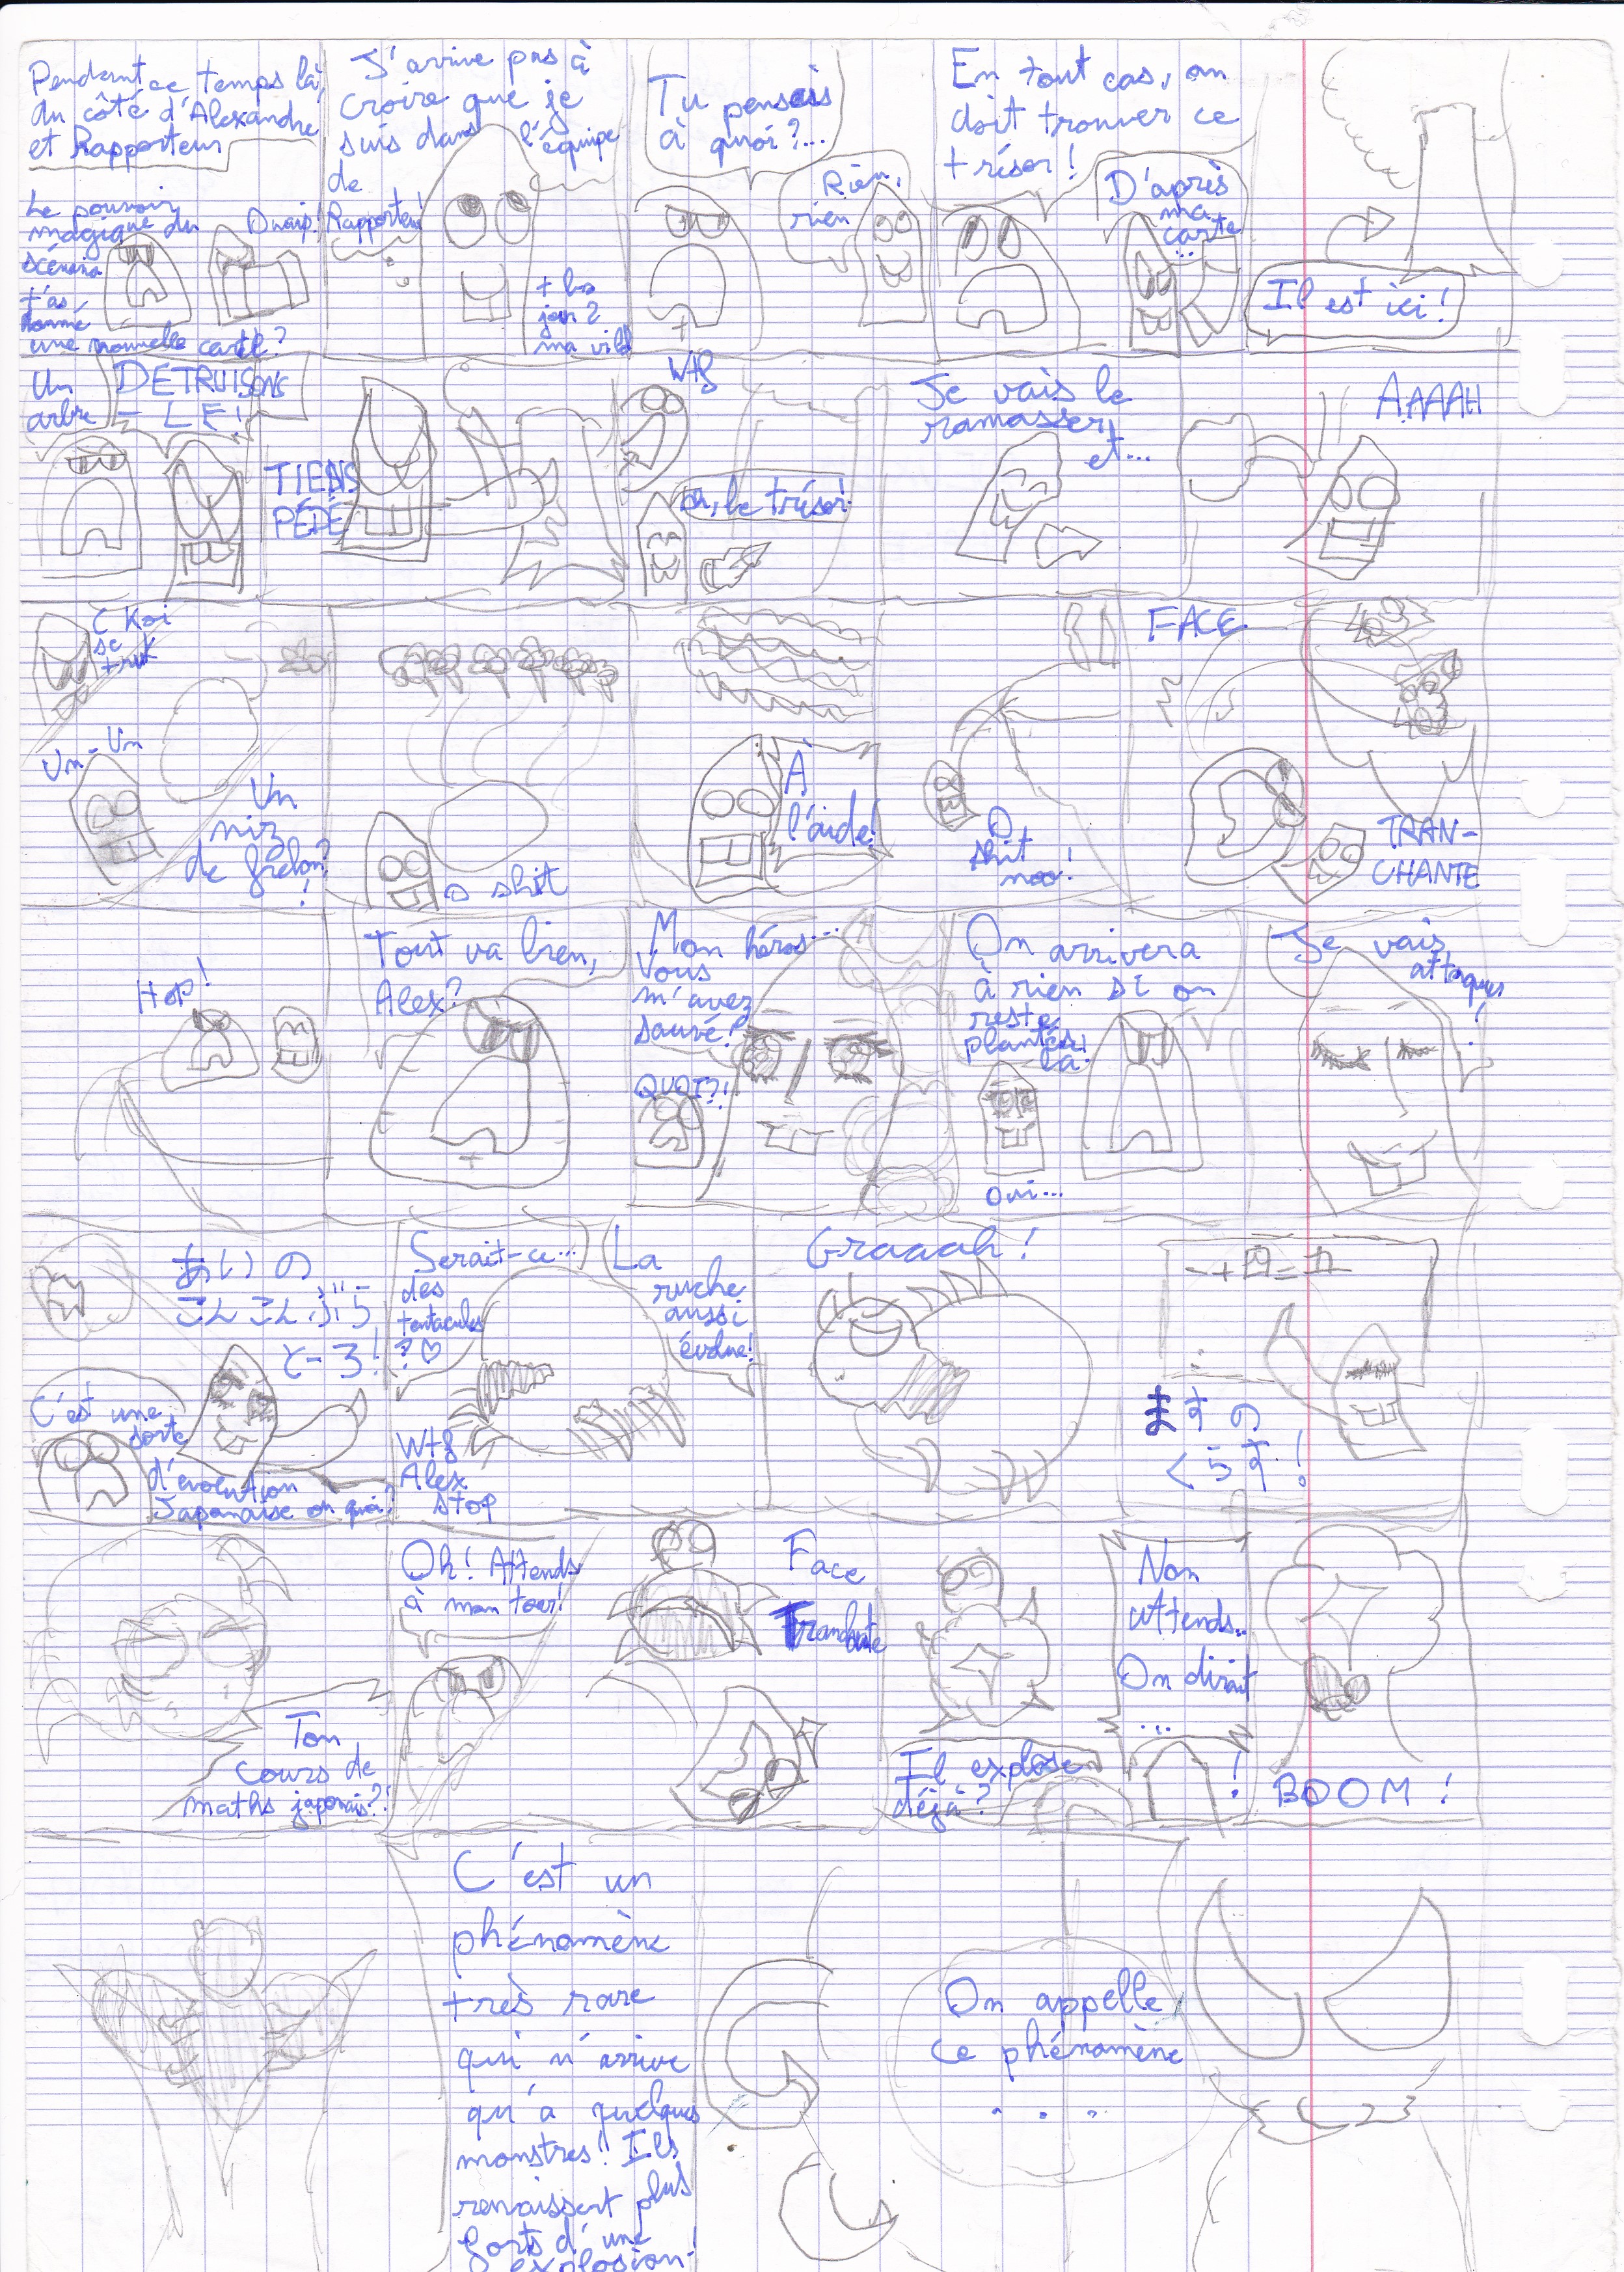 Pendant ce temps là,
du côté d'Alexandre
et Rapporteur
Le pouvoir
magique du
scénario
t'as
donné
une nouvelle carte?
Ouaip!
J'arrive pas à
croire que je
suis dans l'équipe
de
Rapporteur!
Tu pensais
à quoi?...
Rien,
rien
En tout cas, on
doit trouver ce
trésor!
D'après
ma
carte
...
Il est ici!
Un
arbre
DÉTRUISONS
-LE!
TIENS
PÉDÉ
Wtf
Oh, le trésor!
Je vais le
ramasser,
et...
AAAAH
C Koi
se
truk
Un-Un
Un
niz
de frelon?
!
O shit
À
l'aide!
O
shit
noo!
FACE
TRAN-
CHANTE
Hop!
Tout va bien,
Alex?
Mon héros...
Vous
m'avez
sauvé!
QUOI?!
On arrivera
à rien si on
reste
plantés
là!
Oui...
Je vais
attaquer
!
あいの
こんこんぶら
とーろ!
C'est une
sorte
d'évolution
Japonaise ou quoi?
Serait-ce...
des
tentacules
?♡
La
ruche
aussi
évolue!
Wtf
Alex
stop
Graaah!
ますの
くらす!
Ton
cours de
maths japonais?!
Oh! Attends
à mon tour!
Face
Tranchante
Il explose
déjà?
Non
attends..
On dirait
...
!
BOOM!
C'est un
phénomène
très rare
qui n'arrive
qu'à quelques
monstres! Ils
renaissent plus
forts d'une
explosion!
On appelle
ce phénomène
...